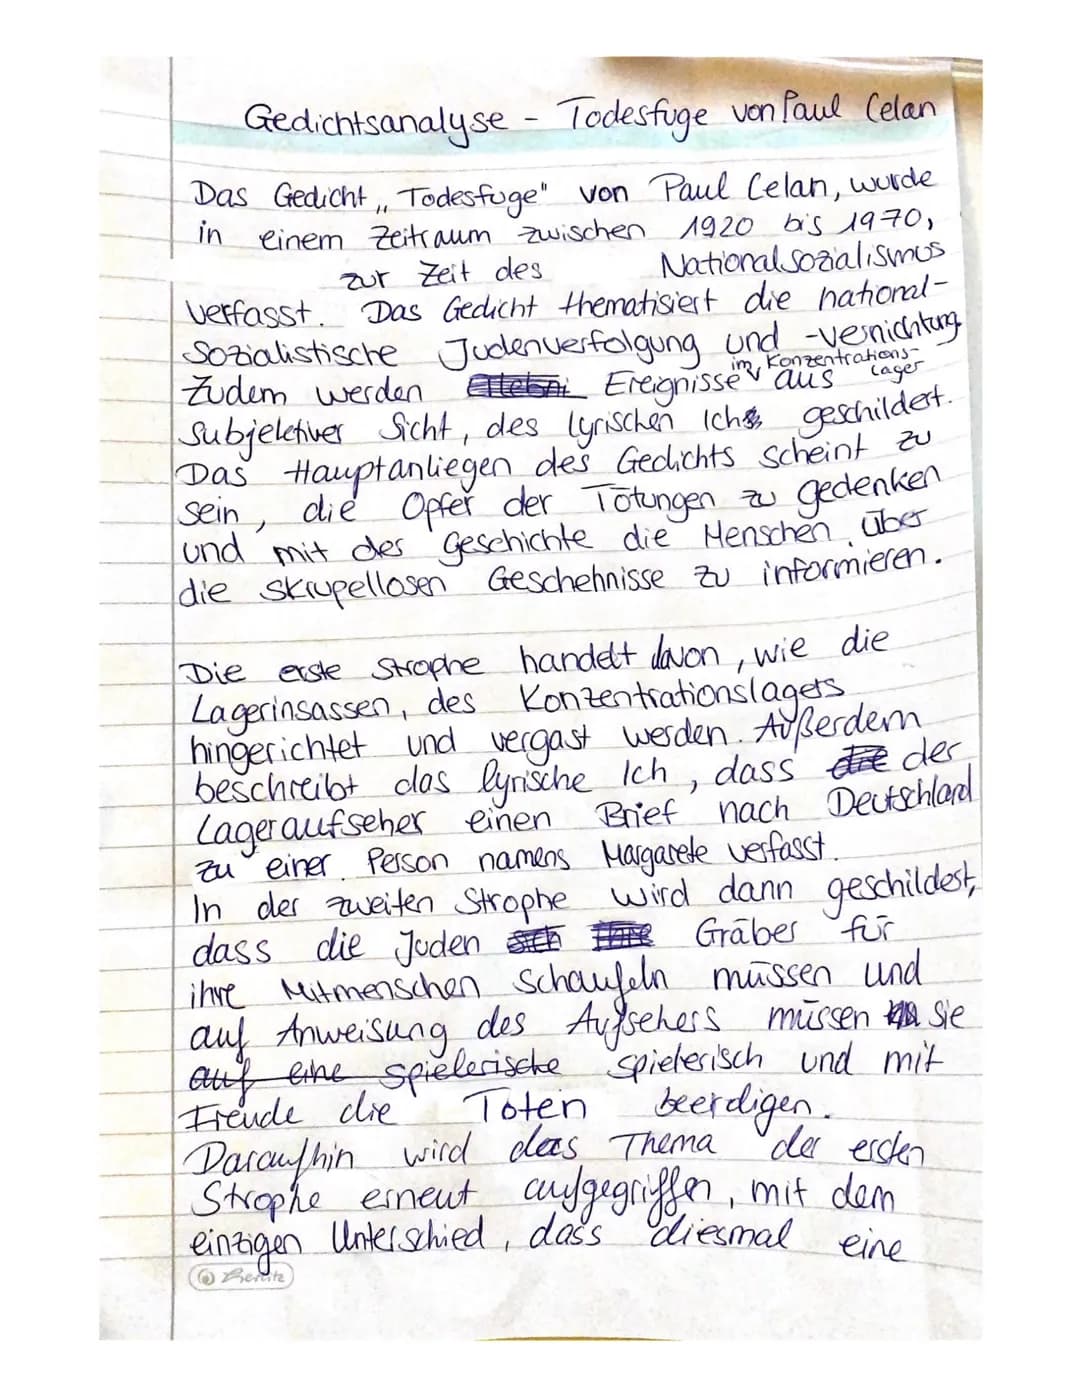 Gedichtsanalyse - Todesfuge von Paul Celan
Das Gedicht „Todesfuge" von Paul Celan, wurde
in einem Zeitraum zwischen 1920 bis 1970,
zur Zeit des Nationalsozialismus
verfasst. Das Gedicht thematisiert die national-
sozialistische Judenverfolgung und -vernichtung.
Zudem werden Ereignisse im Konzentrations-lager aus
subjektiver Sicht, des lyrischen Ichs geschildert.
Das Hauptanliegen des Gedichts scheint zu
sein, die Opfer der Tötungen zu gedenken
und mit der Geschichte die Menschen über
die skrupellosen Geschehnisse zu informieren.
Die erste Strophe handelt davon, wie die
Lagerinsassen, des Konzentrationslagers
hingerichtet und vergast werden. Außerdem
beschreibt das lyrische Ich, dass die der
Lageraufseher einen Brief nach Deutschland
zu einer Person namens Margarete verfasst.
In der zweiten Strophe wird dann geschildert,
dass die Juden sich ihre Gräber für
ihre Mitmenschen schaufeln müssen und
auf Anweisung des Aufsehers müssen sie
auf eine spielerische spielerisch und mit
Freude die Toten beerdigen.
Daraufhin wird das Thema der ersten
Strophe erneut aufgegriffen, mit dem
einzigen Unterschied, dass diesmal eine